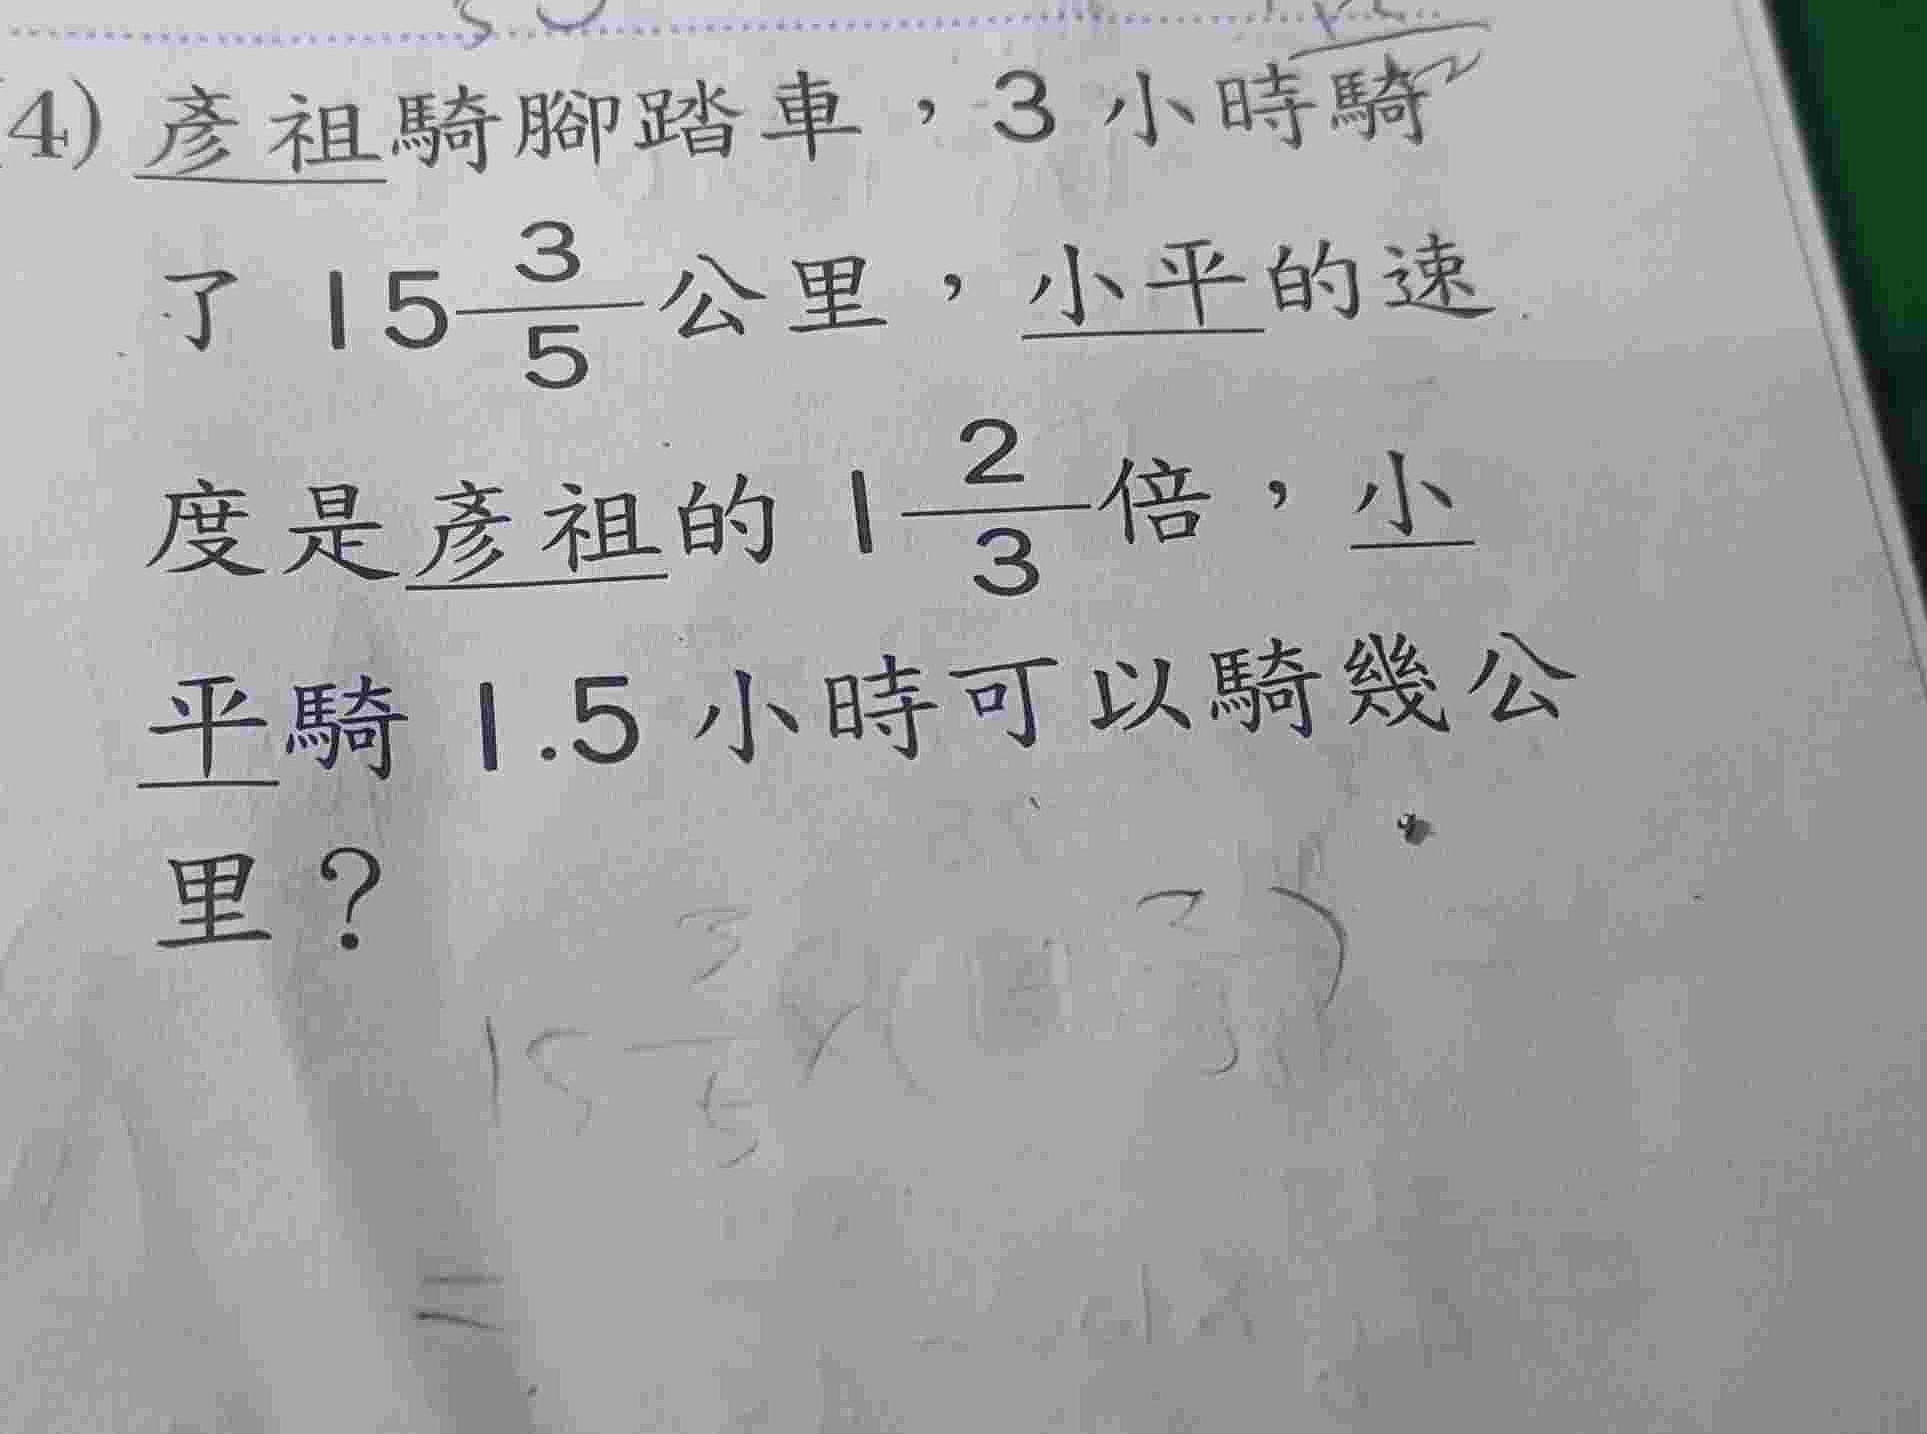 (4) 彥祖騎腳踏車，3 小時騎
了 15 3/5 公里，小平的速
度是彥祖的 1 2/3 倍，小
平騎 1.5 小時可以騎幾公
里？
15 3/5
=